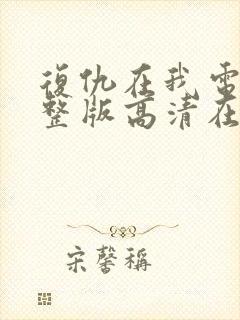 復仇在我電
整版高清在
宋馨稱